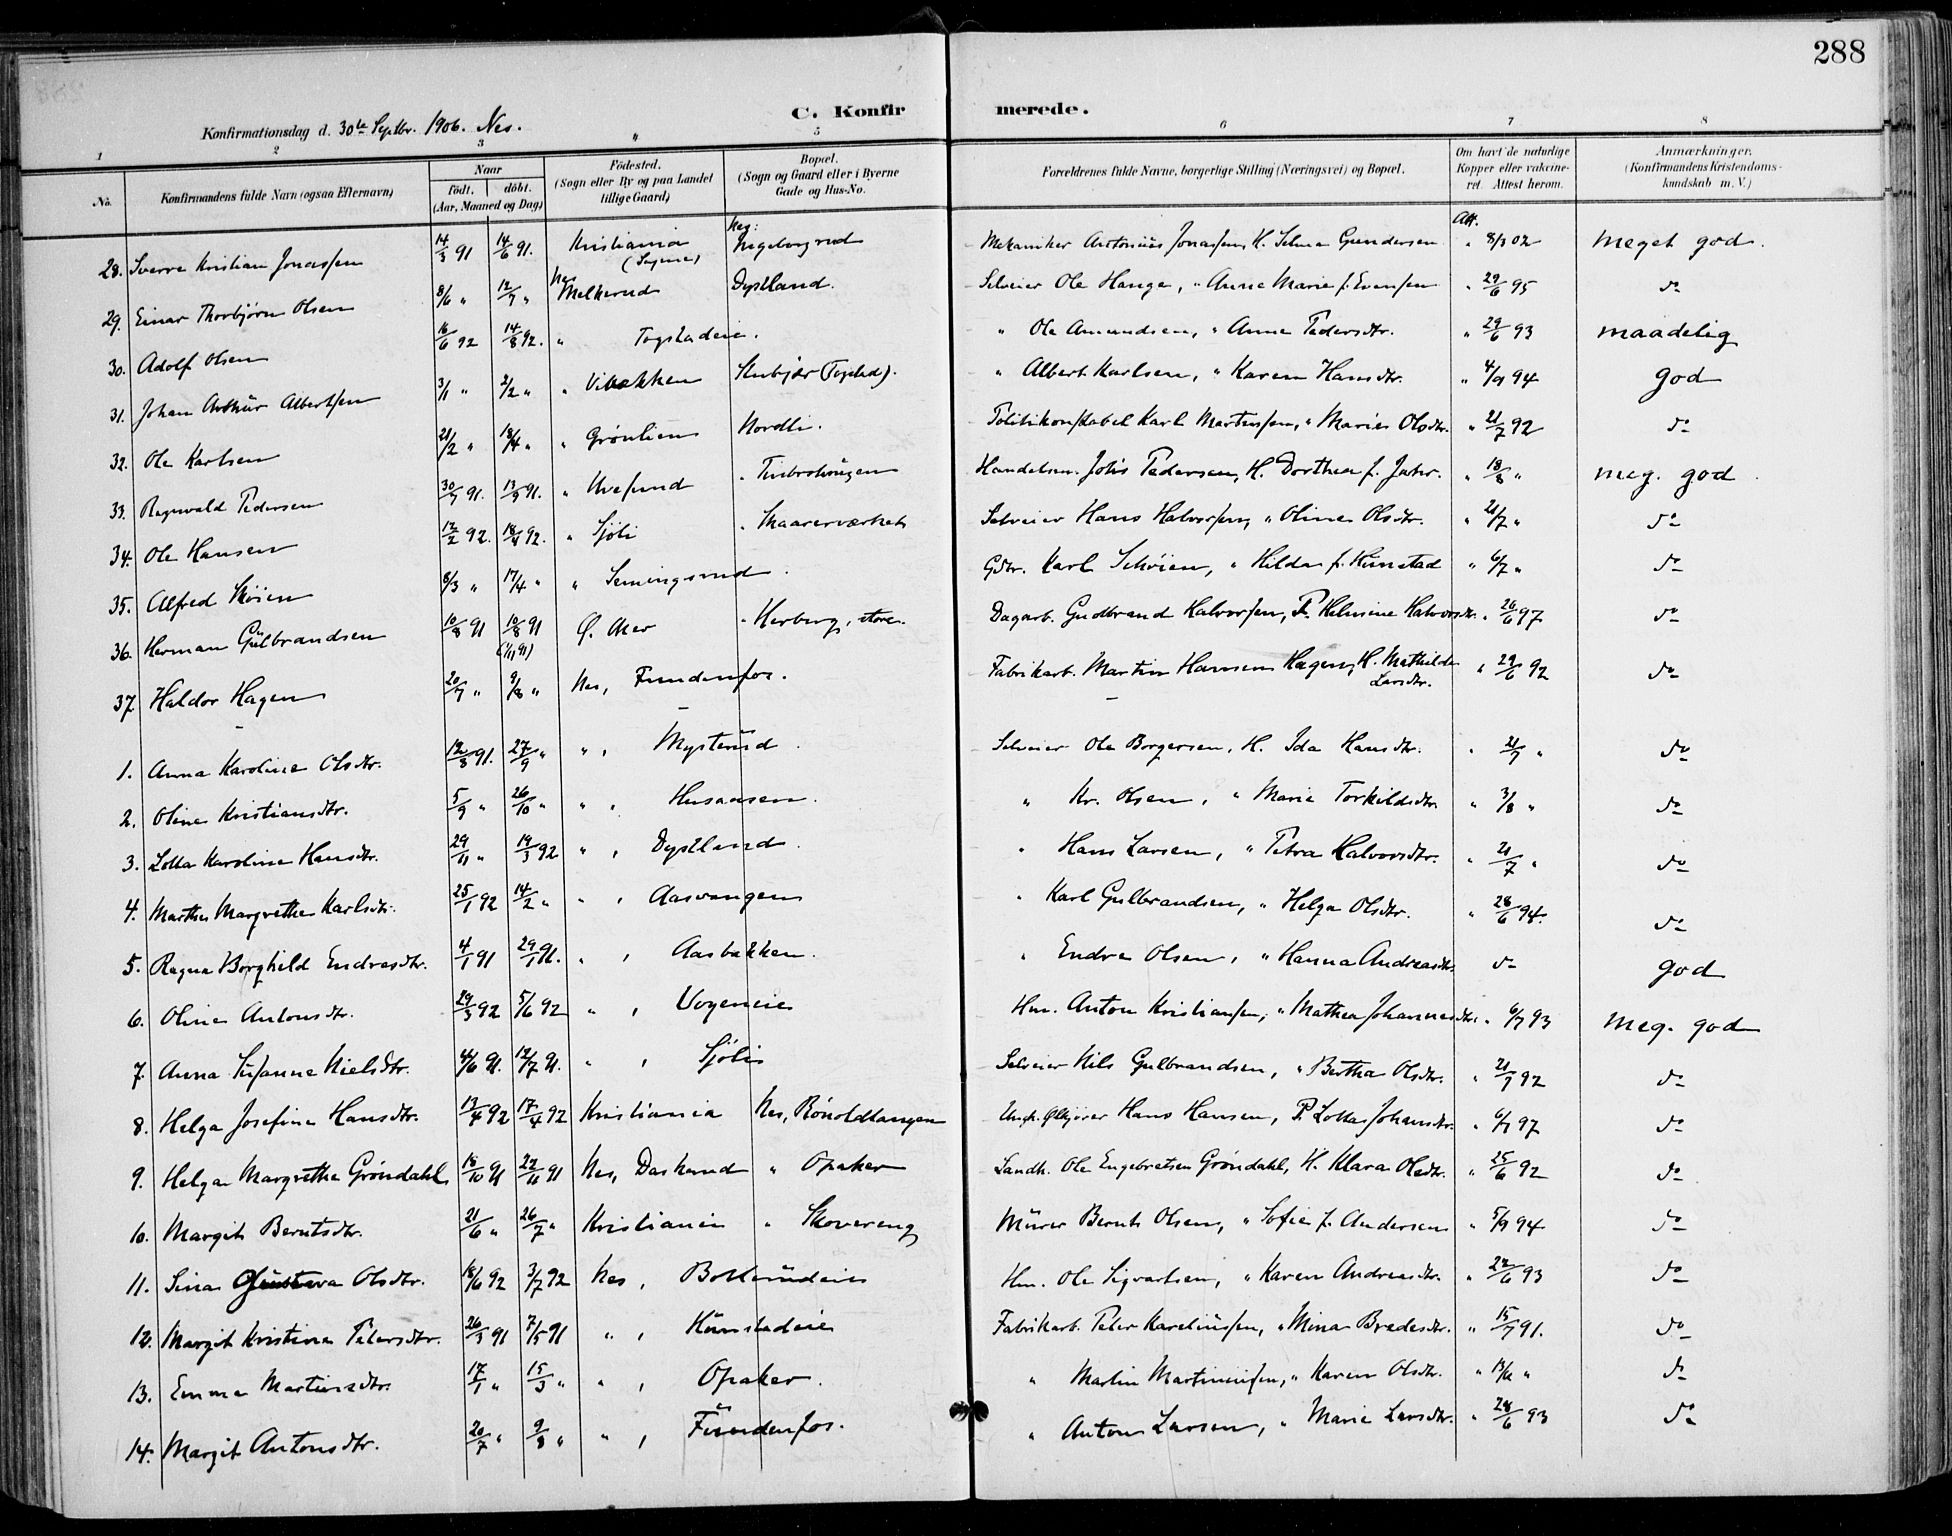 288
C. Konfirmerede.
Konfirmationsdag d. 30te Septbr. 1906. Nes.
1 2 3 4 5 6 7 8
No. Konfirmandens fulde Navn (ogsaa Efternavn) Naar födt. döbt. (Aar, Maaned og Dag) Födested. (Sogn eller By og paa Landet tillige Gaard) Bopæl. (Sogn og Gaard eller i Byerne Gade og Hus-No. Forældrenes fulde Navne, borgerlige Stilling (Næringsvei) og Bopæl. Om havt de naturlige Kopper eller vakcineret. Attest herom. Anmærkninger. (Konfirmandens Kristendomskundskab m. V.)
28. Sverre Kristian Jonassen 14/3 91 14/6 91. Kristiania Nes: Ingeborgrud Mekaniker Antonius Jonassen, H. Selma Gundersen Att. " 8/3 02 meget god.
29. Einar Thorbjörn Olsen 8/6 " 12/7 " Nes Melkerud Dystland. Selveier Ole Hauge, " Anne Marie f. Evensen " 29/6 95 do
30. Adolf Olsen 16/6 92 14/8 92. " Togstadeie. " Ole Amundsen, " Anne Pedersdtr. " 29/6 93 maadelig
31. Johan Arthur Albertsen 3/1 " 2/2 " " Vibakken Stubjær (Togstad). " Albert Karlsen, " Karen Hansdtr. " 4/9 94 god
32. Ole Karlsen 21/2 " 18/4 " " Grönlien Nordli. Politikonstabel Karl Martinsen, " Marie Olsdtr. " 21/7 92 do
33. Ragnvald Pedersen 30/7 91. 13/9 91. " Uvesund Handelsm. Johs Pedersen, H. Dorthea f. " 18/8 " meg. god
34. Ole Hansen 12/2 92. 18/4 92. " Sjöli " Skaarerværket Selveier Hans Halvorsen, " Oline Olsdtr. " 21/7 " do
35. Alfred Sköien 8/3 " 17/4 " " Semingsrud. Gbr. Karl Schöien, " Hilda f. Hunstad " 6/7 " do
36. Herman Gulbrandsen 10/8 91 10/8 91 (1/11 91) Ö. Aker " Herberg, store. Dagarb. Gudbrand Halvorsen, P. Helmine Halvorsdtr. " 26/6 97 do
37. Haldor Hagen 20/7 " 9/8 " Nes, Funnefos. Fabrikarb. Martin Hansen Hagen, H. Mathilde Larsdtr. " 29/6 92 do
1. Anna Karoline Olsdtr. 12/8 91. 27/9 " " , Mysterud Selveier Ole Borgersen, H. Ida Hansdtr. " 21/7 " do
2. Oline Kristiansdtr. 5/9 " 26/10 " " , Husaasen. " Kr. Olsen, " Marie Torkildsdtr. " 3/8 " do
3. Lotta Karoline Hansdtr. 29/11 " 19/3 92 " , Dystland. " Hans Larsen, " Petra Halvorsdtr. " 21/7 " do
4. Marthe Margrethe Karlsdtr. 25/1 92 14/2 " " , Aasvangen " Karl Gulbrandsen, " Helga Olsdtr. " 28/6 94. do
5. Ragna Borghild Endresdtr. 4/1 91 29/1 91. " , Aasbakken. " Endre Olsen, " Hanna Andreasdtr. do god
6. Oline Antonsdtr. 29/3 92 5/6 92 " , Vogeneie Hm. Anton Kristiansen, " Mathea Johannesdtr. " 6/7 93 meg. god
7. Anna Susanne Nielsdtr. 4/6 91. 12/7 91. " , Sjöli Selveier Nils Gulbrandsen, " Bertha Olsdtr. " 21/7 92 do
8. Helga Josefine Hansdtr. 13/4 92 17/4 92 Kristiania Nes, Rönoldtangen Hans Hansen, P. Lotta Johansdtr. " 6/7 97 do
9. Helga Margrethe Gröndahl 18/10 91 22/11 91 Nes, Daskerud " Opaker Landh. Ole Engebretsen Gröndahl, H. Klara Olsdtr. " 25/6 92 do
10. Margit Berntsdtr. 21/6 " 26/7 " Kristiania " Skovereng Murer Bernt Olsen, " Sofie f. Andersen " 5/9 94 do
11. Sina Gustava Olsdtr. 18/6 92 3/7 92 Nes, Bollerudeie Hm. Ole Sigvartsen, " Karen Andreasdtr. " 22/6 93 do
12. Margit Kristine Petersdtr. 26/3 91 7/5 91 " , Hunstadeie Fabrikarb. Peter Kareliussen, " Mina Bredesdtr. " 15/7 91. do
13. Emma Martinsdtr. 17/1 " 15/3 " " , Opaker. " Martin Martiniusen, " Karen Olsdtr. " do
14. Margit Antonsdtr. 20/7 " 9/8 " " , Funnefos. " Anton Larsen, " Marie Larsdtr. " 28/6 93 do